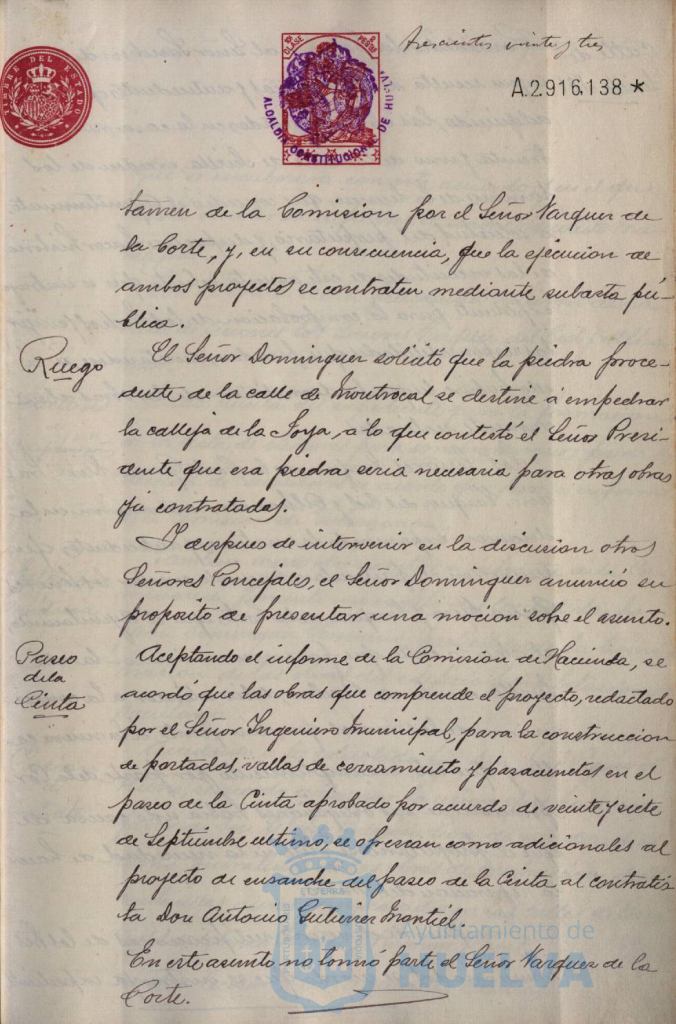 Trescientos veinte y tres
TIMBRE DEL ESTADO
10ª CLASE
2 PESETAS
ALCALDIA CONSTITUCIONAL DE HUELVA
A.2.916.138 *
tamen de la Comision por el Señor Vazquez de
la Corte, y, en su consecuencia, que la ejecucion de
ambos proyectos se contraten mediante subasta pú-
blica.
Ruego
El Señor Dominguez solicitó que la piedra proce-
dente de la calle de Montrocal se destine á empedrar
la calleja de la Joya, á lo que contestó el Señor Presi-
dente que esa piedra seria necesaria para otras obras
ya contratadas.
Y despues de intervenir en la discusion otros
Señores Concejales, el Señor Dominguez anunció su
proposito de presentar una mocion sobre el asunto.
Paseo
de la
Cinta
Aceptando el informe de la Comision de Hacienda, se
acordó que las obras que comprende el proyecto, redactado
por el Señor Ingeniero Municipal, para la construccion
de portadas, vallas de cerramiento y pasacunetas en el
paseo de la Cinta aprobado por acuerdo de veinte y siete
de Septiembre ultimo, se ofrezcan como adicionales al
proyecto de ensanche del paseo de la Cinta al contratis
ta Don Antonio Gutierrez Montiel.
En este asunto no tomó parte el Señor Vazquez de la
Corte.
Ayuntamiento de
HUELVA